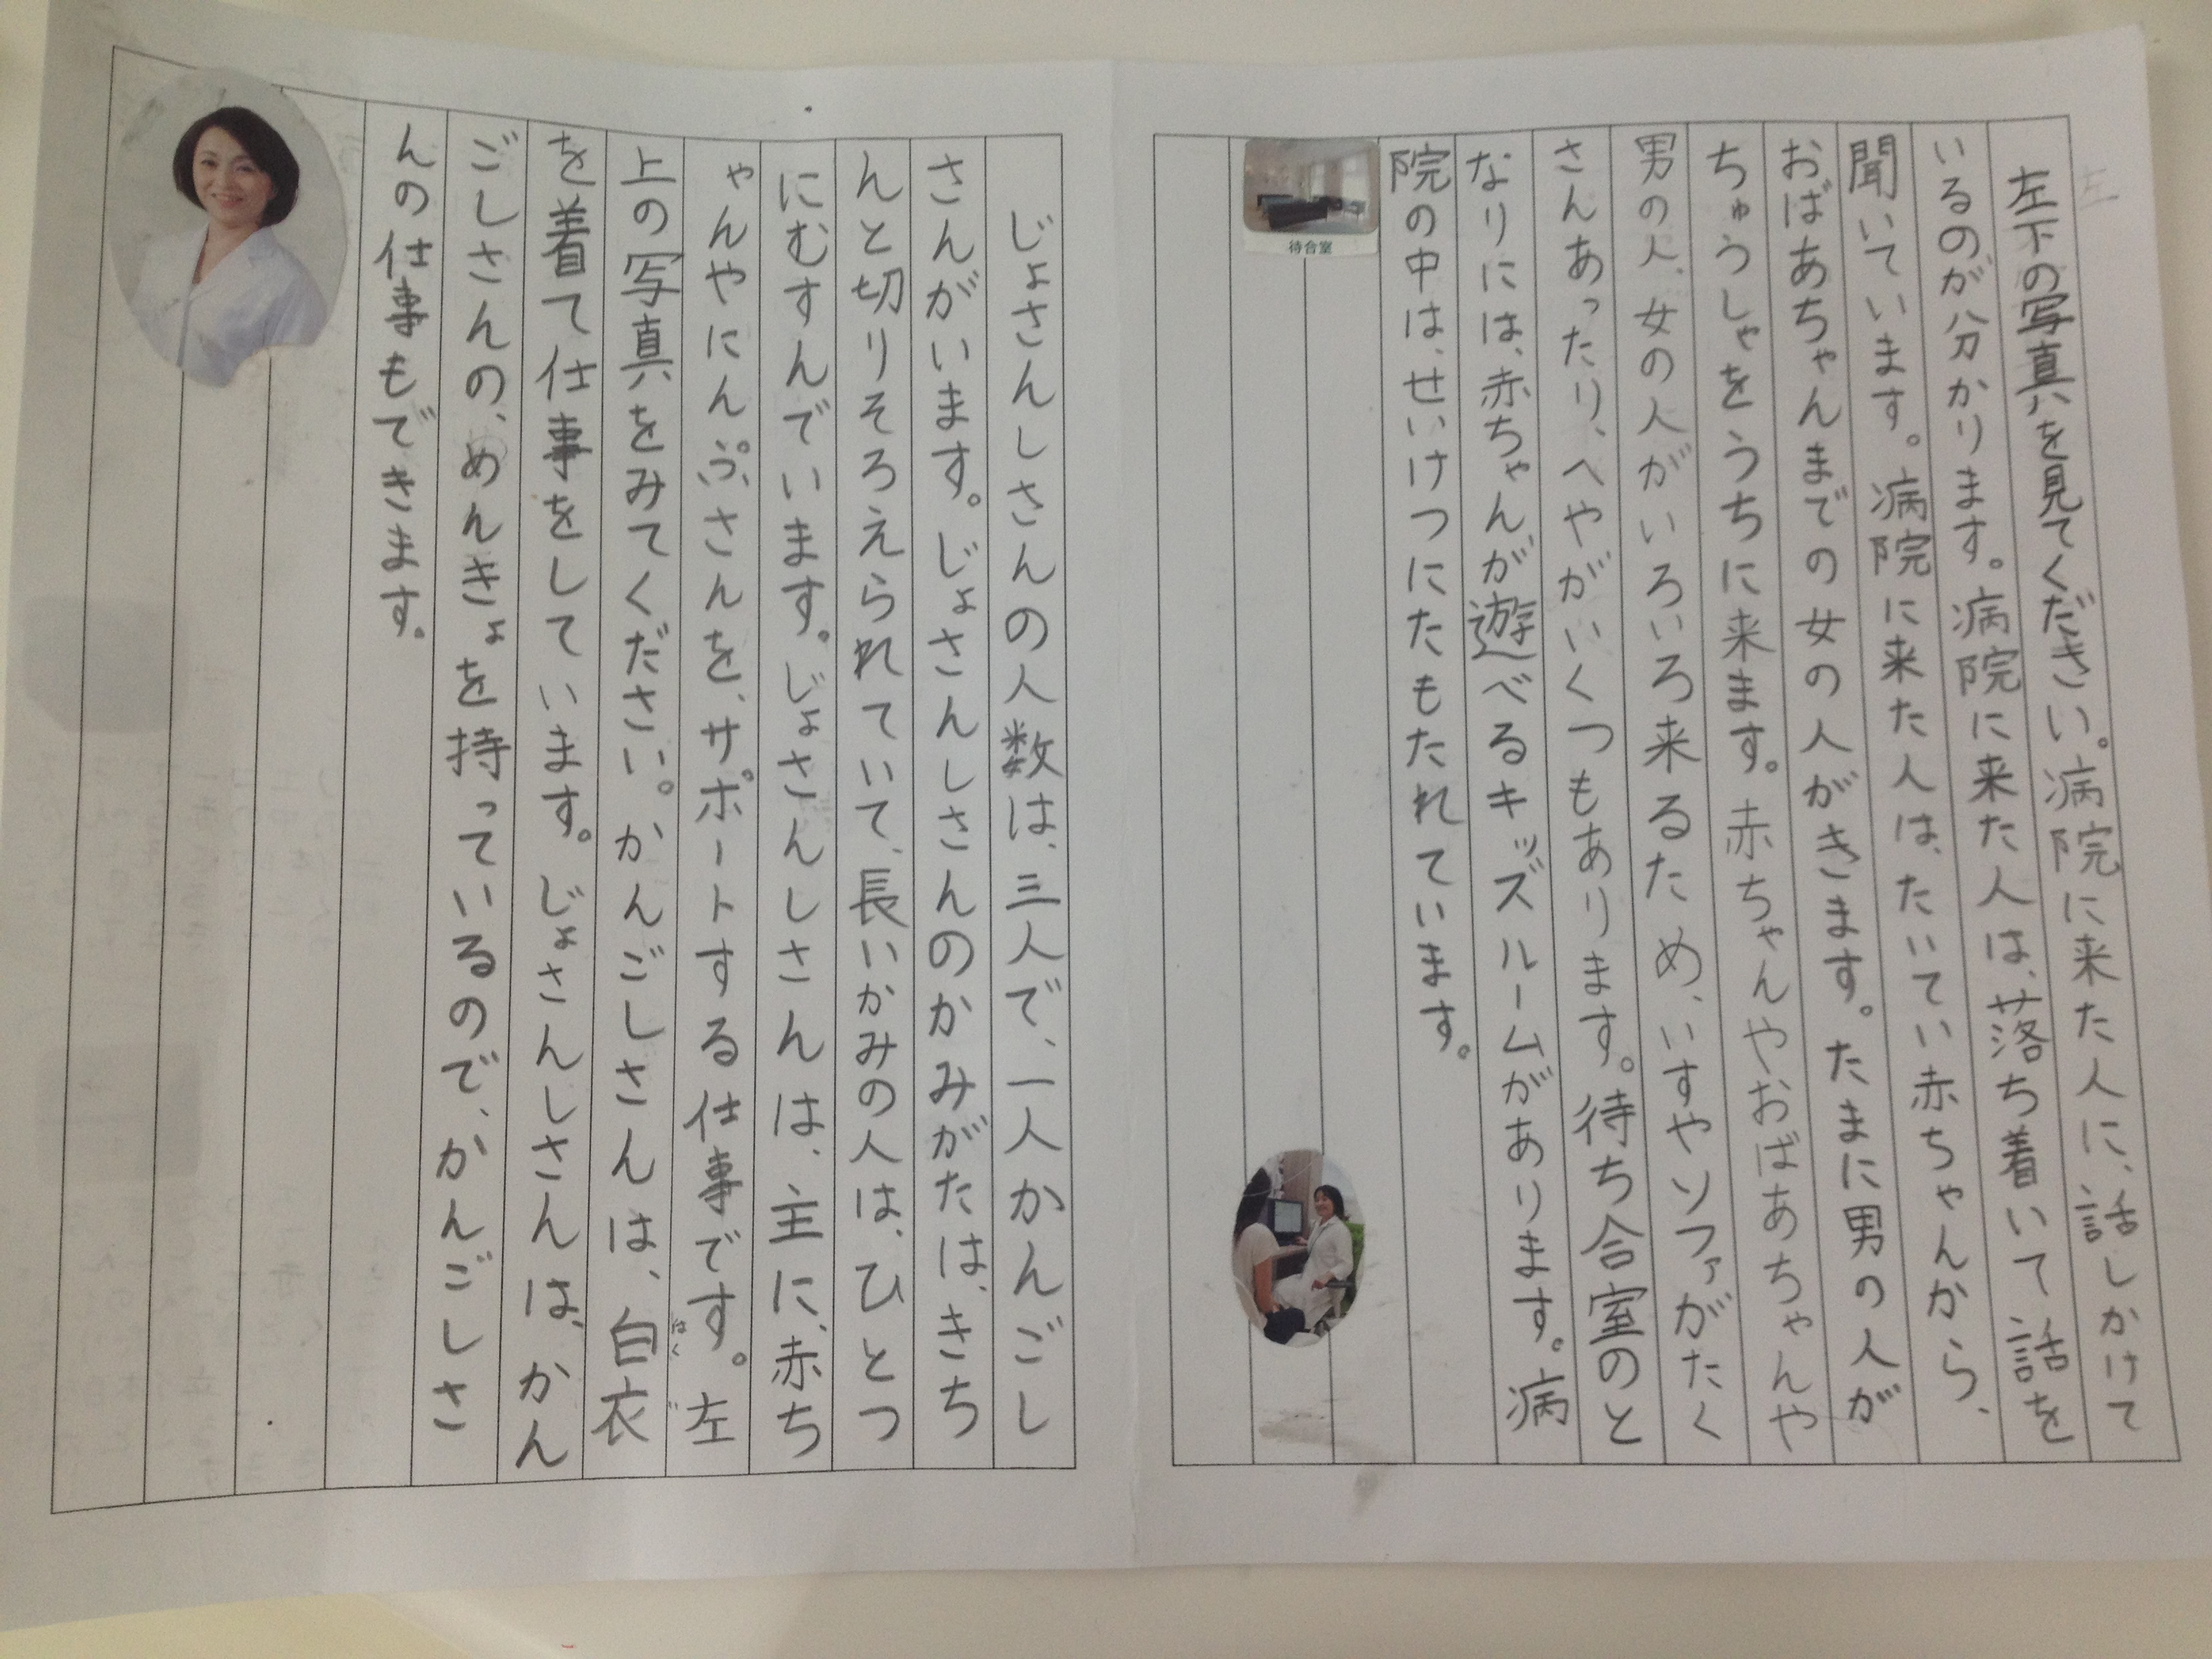 左下の写真を見てください。病院に来た人に、話しかけて
いるのが分かります。病院に来た人は、落ち着いて話を
聞いています。病院に来た人は、たいてい赤ちゃんから、
おばあちゃんまでの女の人がきます。たまに男の人が
ちゅうしゃをうちに来ます。赤ちゃんやおばあちゃんや
男の人、女の人がいろいろ来るため、いすやソファがたく
さんあったり、へやがいくつもあります。待ち合室のと
なりには、赤ちゃんが遊べるキッズルームがあります。病
院の中は、せいけつにたもたれています。
待合室
じょさんしさんの人数は、三人で、一人かんごし
さんがいます。じょさんしさんのかみがたは、きち
んと切りそろえられていて、長いかみの人は、ひとつ
にむすんでいます。じょさんしさんは、主に、赤ち
ゃんやにんぷさんを、サポートする仕事です。左
上の写真をみてください。かんごしさんは、白衣
はくい
を着て仕事をしています。じょさんしさんは、かん
ごしさんの、めんきょを持っているので、かんごしさ
んの仕事もできます。